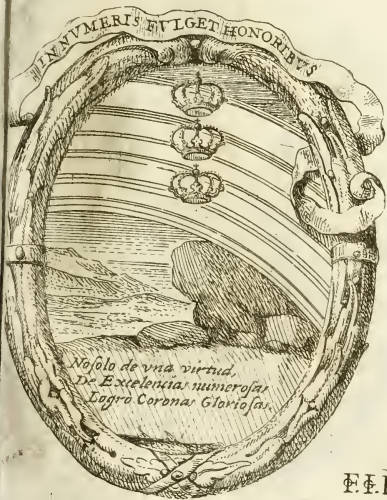 INNVMERIS FVLGET HONORIBVS
No sólo de vna virtud,
De Excelencias numerosas
Logró Coronas Gloriosas.